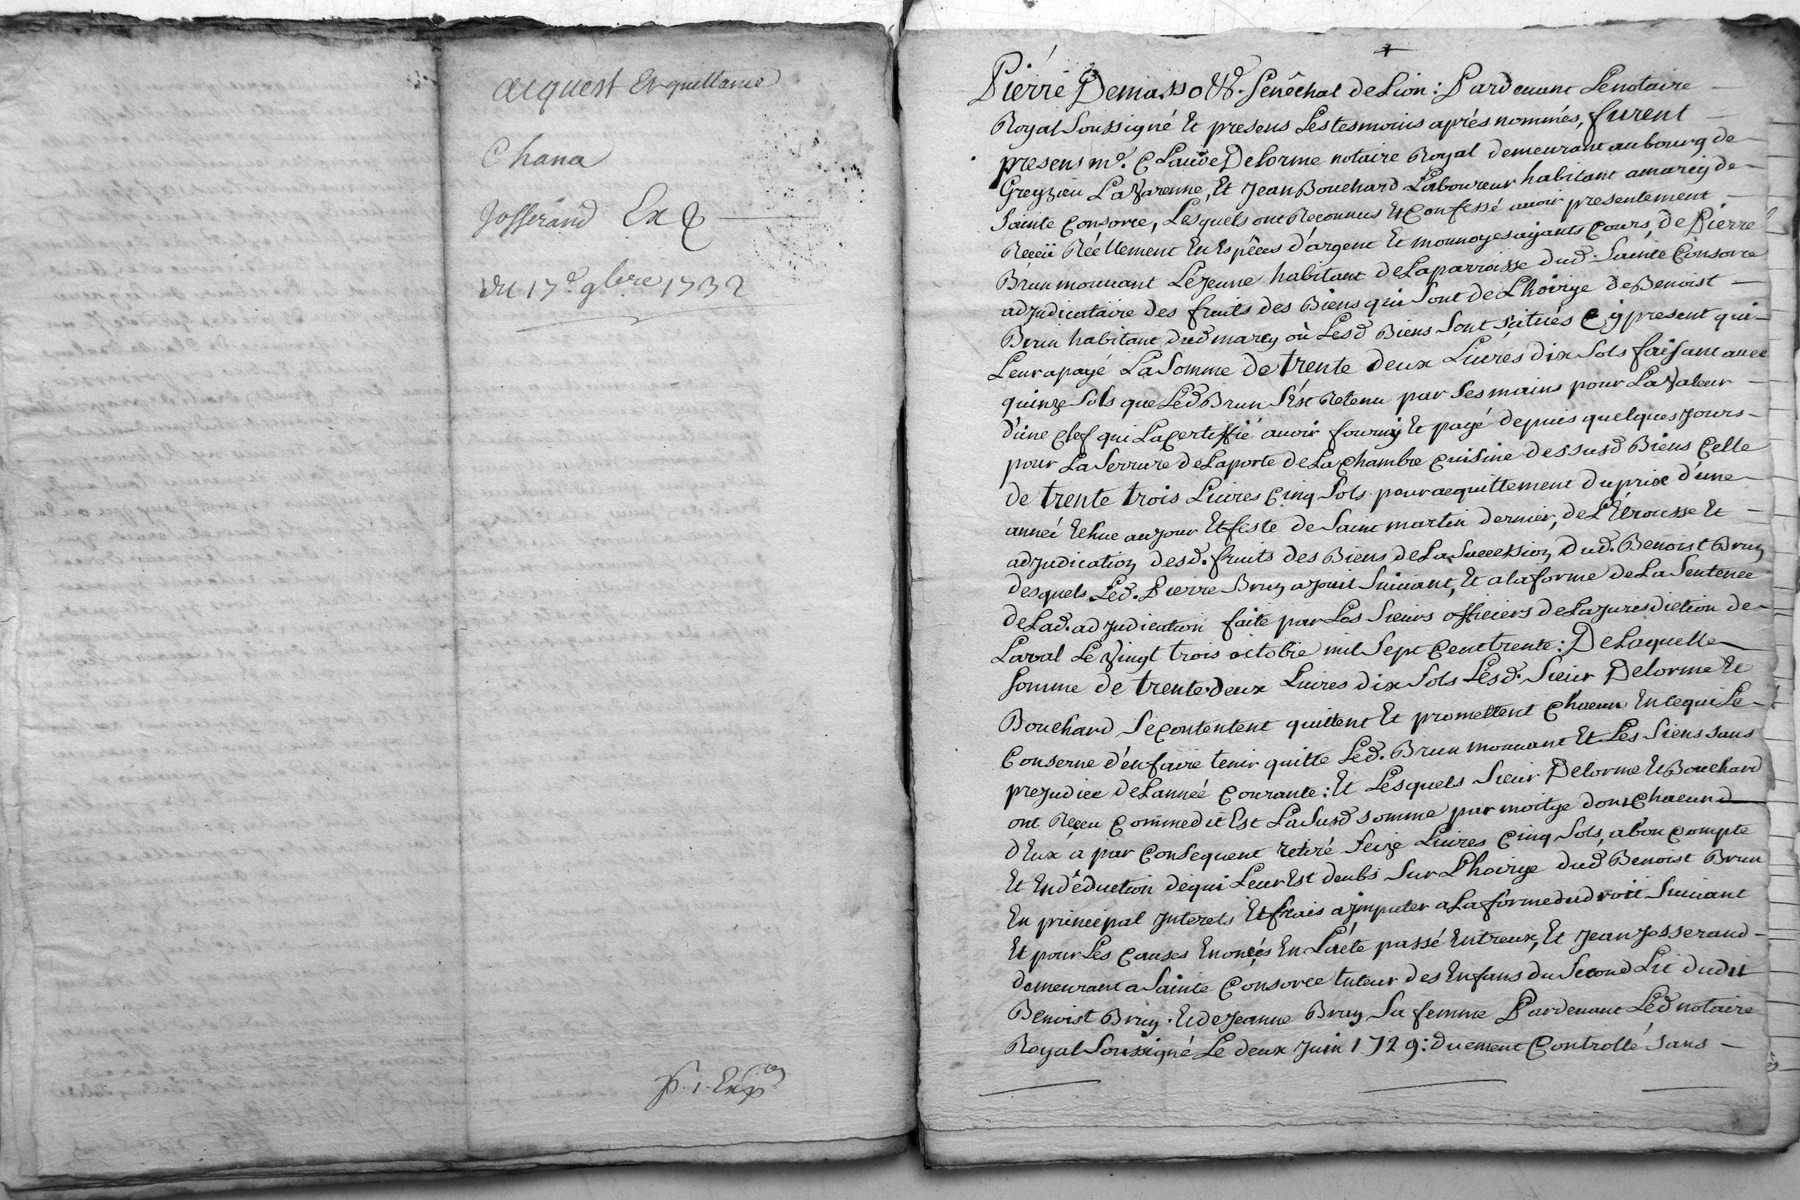 acquest Et quittance
Chana
Josserand Ex
du 17e 9bre 1732
1. Exp
Pierré Demasso &. Senêchal de Lion: Pardevant Le notaire
Royal Soussigné Et presens Les tesmoins aprés nommés, furent
presens me. Claude Delorme notaire Royal demeurant au bourg de
Greyzieu La Varenne, Et Jean Bouchard Laboureur habitant a marcy de
Sainte Consorce, Lesquels ont Reconnus Et Confessé avoir presentement
Receü Réellement En Espêces d'argent Et monnoyes ayants Cours, de Pierré
Brun mouvant Le Jeune habitant de La parroisse dud. Sainte Consorce
adjudicataire des fruits des Biens qui Sont de L'hoirye de Benoist
Brun habitant dud marcy où Lesd Biens Sont Scitués Cy present qui
Leur a payé La Somme de trente deux Livres dix Sols faisant avec
quinze Sols que Led Brun S'est Retenu par Ses mains pour La Valeur
d'une Clef qui La Certiffié avoir fourny Et payé depuis quelques Jours
pour La Serrure de La porte de La Chambre Cuisine des susd Biens Celle
de trente trois Livres Cinq Sols pour acquittement du prix d'une
année Echue au Jour Et feste de Saint martin dernier, de L'Etrousse Et
adjudication desd. fruits des Biens de La Succession dud. Benoist Brun
desquels Led. Pierre Brun a Jouit Suivant, Et a la forme de La Sentence
de Lad. adjudication faite par Les Sieurs officiers de La Jurisdiction de
Laval Le Vingt trois octobre mil Sept Cent trente: De Laquelle
Somme de trente deux Livres dix Sols Lesd. Sieur Delorme Et
Bouchard Se Contentent quittent Et promettent Chacun En Ce qui Le
Conserne d'en faire tenir quitte Led. Brun mouvant Et Les Siens sans
prejudice de L'année Courante: Et Lesquels Sieur Delorme Et Bouchard
ont Reçeu Comme dit Est La Susd Somme par moitye dont Chacun d
d'Eux a par Consequent retiré Seize Livres Cinq Sols, a bon Compte
Et En déduction de qui Leur Est deubs Sur L'hoirye dud Benoist Brun
En principal Interets Et frais a Imputer a La forme du droit Suivant
Et pour Les Causes Enoncés En L'acte passé Entreux, Et Jean Josserand
demeurant a Sainte Consorce tuteur des Enfans du Second Lit dudit
Benoist Brun. Et de Jeanne Brun Sa femme Pardevant Led notaire
Royal Soussigné Le deux Juin 1729: duement Controllé Sans